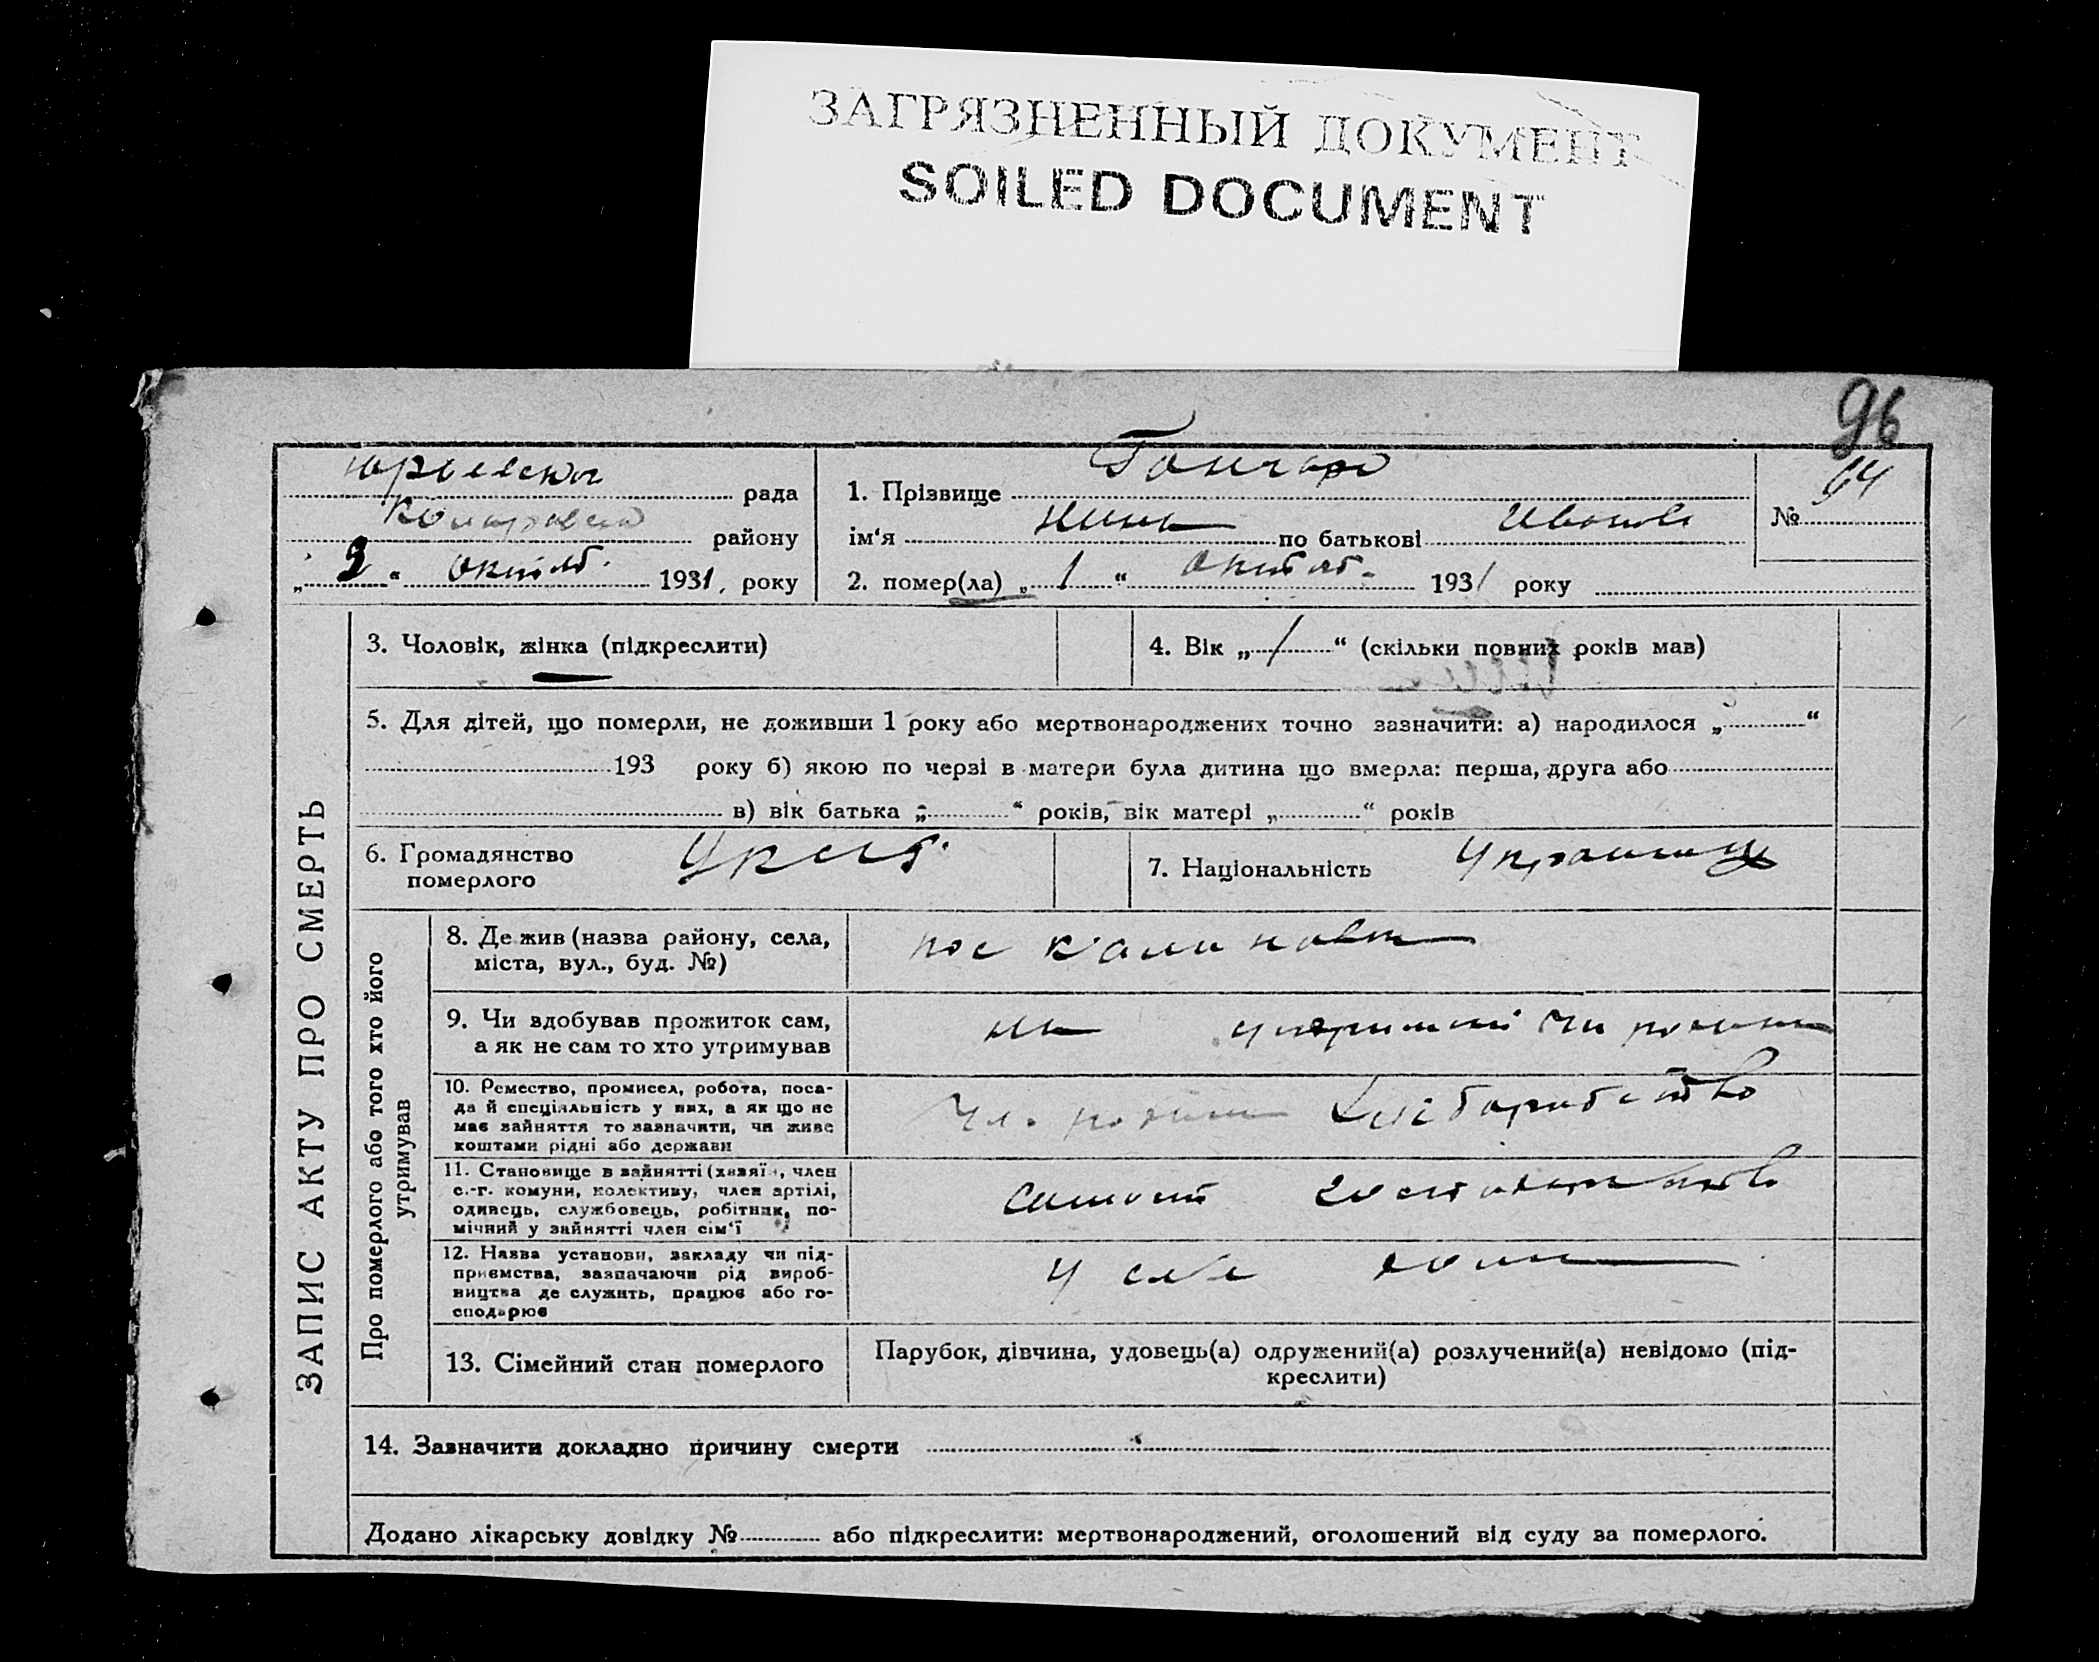 ЗАГРЯЗНЕННЫЙ ДОКУМЕНТ
SOILED DOCUMENT
96
ЗАПИС АКТУ ПРО СМЕРТЬ
рада
району
„ 2 “ октяб. 1931, року
1. Прізвище Гончар
№ 64
ім‘я Нина по батькові Иванов
2. помер(ла) „ 1 “ октяб. 1931 року
3. Чоловік, жінка (підкреслити)
4. Вік „ 1 “ (скільки повних років мав)
5. Для дітей, що померли, не доживши 1 року або мертвонароджених точно зазначити: а) народилося „ “
193 року б) якою по черзі в матери була дитина що вмерла: перша, друга або
в) вік батька „ “ років, вік матері „ “ років
6. Громадянство
померлого
7. Національність
Про померлого або того хто його
утримував
8. Де жив (назва району, села,
міста, вул., буд. №)
пос
9. Чи вдобував прожиток сам,
а як не сам то хто утримував
10. Ремество, промисел, робота, поса-
да й спеціяльність у них, а як що не
має зайняття то зазначити, чи живе
коштами рідні або держави
11. Становище в зайнятті (хазяїн, член
с.-г. комуни, колективу, член артілі,
одинець, службовець, робітник, по-
мічний у зайнятті член сім‘ї
12. Назва установи, закладу чи під-
приємства, зазначаючи рід вироб-
ництва де служить, працює або го-
сподарює
13. Сімейний стан померлого
Парубок, дівчина, удовець(а) одружений(а) розлучений(а) невідомо (під-
креслити)
14. Зазначити докладно причину смерти
Додано лікарську довідку № або підкреслити: мертвонароджений, оголошений від суду за померлого.